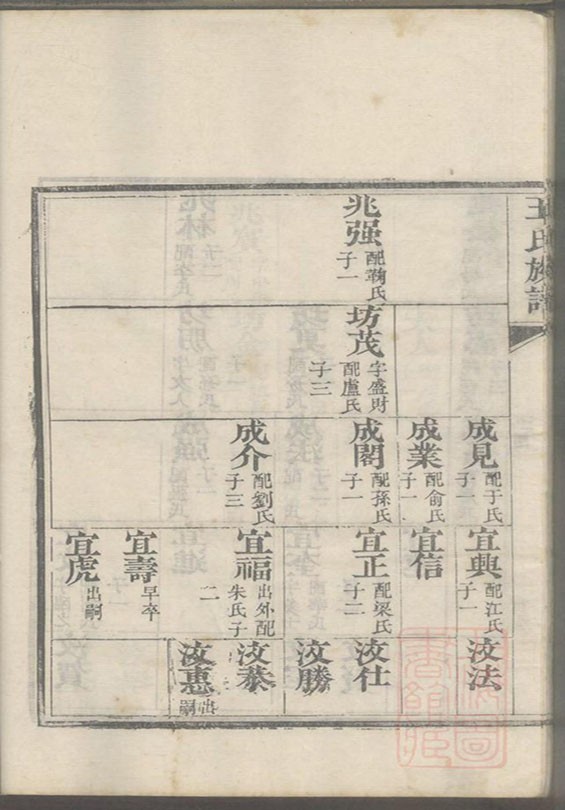 王氏族譜
兆强 配鞠氏 子一
坊茂 字盛財 配盧氏 子三
成見 配于氏 子一
成業 配俞氏 子一
成閣 配孫氏 子一
成介 配劉氏 子三
宜典 配江氏 子一
宜信
宜正 配梁氏 子二
宜福 出外配朱氏子二
宜壽 早卒
宜虎 出嗣
汝法
汝仕
汝勝
汝泰
汝惠 出嗣